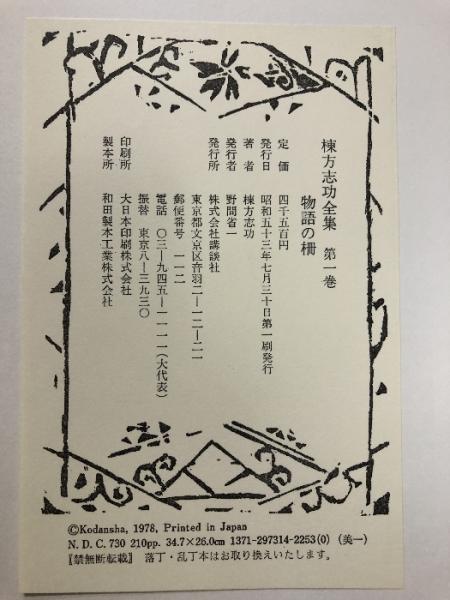 棟方志功全集　第一巻
物語の柵
定　価　四千五百円
発行日　昭和五十三年七月三十日第一刷発行
著　者　棟方志功
発行者　野間省一
発行所　株式会社講談社
東京都文京区音羽二―一二―二一
郵便番号　一一二
電話　〇三―九四五―一一一一(大代表)
振替　東京八―三九三〇
印刷所　大日本印刷株式会社
製本所　和田製本工業株式会社
©Kodansha, 1978, Printed in Japan
N. D. C. 730 210pp. 34.7×26.0cm 1371-297314-2253(0) (美一)
〖禁無断転載〗 落丁・乱丁本はお取り換えいたします。